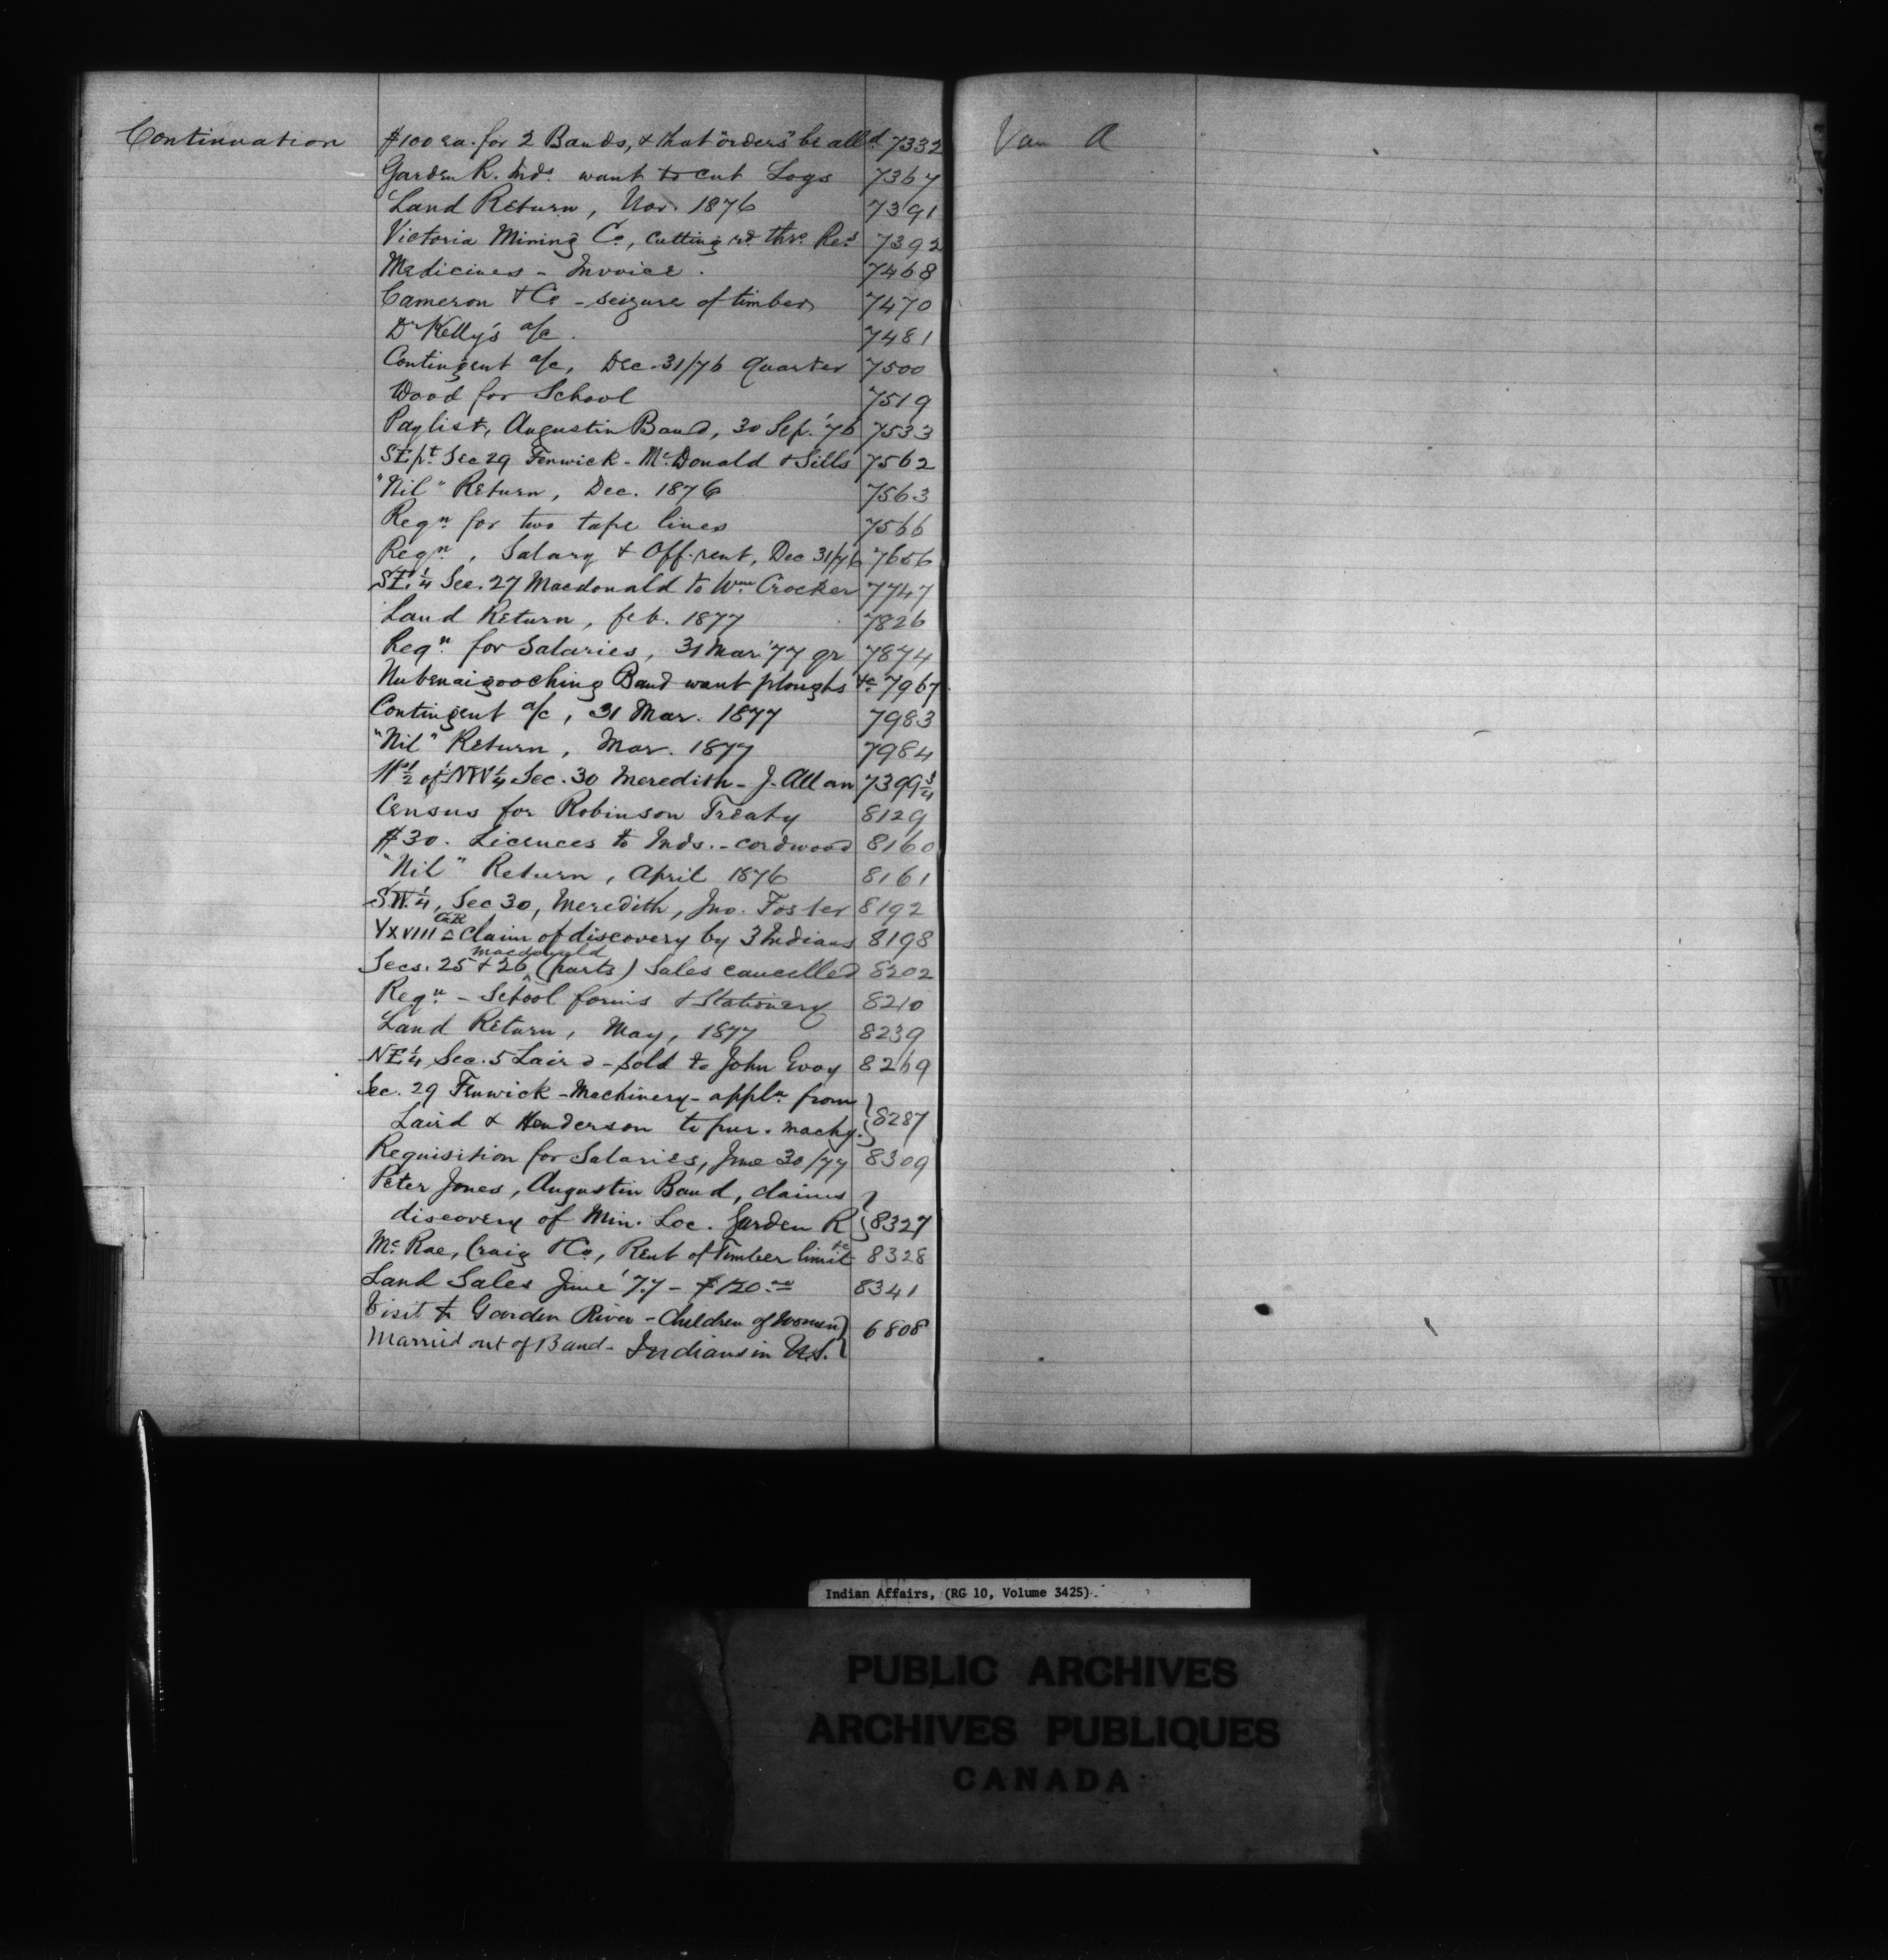 Continuation $100 ea. for 2 Bands, & that "orders" be alld. 7332
Garden R. Inds. want to cut Logs 7367
Land Return, Nov. 1876 7391
Victoria Mining Co, cutting rd. thro Res 7392
Medicines - Invoice. 7468
Cameron & Co - seizure of timber 7470
Dr Kelly's a/c. 7481
Contingent a/c, Dec. 31/76 quarter 7500
Wood for School 7519
Paylist, Augustin Band, 30 Sep. '76 7533
SE pt Sec 29 Fenwick - McDonald & Sills 7562
"Nil" Return, Dec. 1876 7563
Reqn for two tape lines 7566
Reqn, Salary & Off. rent, Dec 31/76 7656
SE. 1/4 Sec. 27 Macdonald to Wm Crocker 7747
Land Return, feb. 1877 7826
Reqn for Salaries, 31 Mar '77 qr 7874
Nubenaigooching Band want ploughs &c 7967
Contingent a/c, 31 Mar. 1877 7983
"Nil" Return, Mar. 1877 7984
W 1/2 of NW 1/4 Sec. 30 Meredith - J. Allan 7399 3/4
Census for Robinson Treaty 8129
$30. Licences to Inds. - cordwood 8160
"Nil" Return, April 1876 8161
SW. 1/4, Sec 30, Meredith, Jno. Foster 8192
XXVIII GR Claim of discovery by 3 Indians 8198
Secs. 25 & 26 Macdonald (parts) Sales cancelled 8202
Reqn - School forms & Stationery 8210
Land Return, May, 1877 8239
NE 1/4 Sec. 5 Laird - sold to John Evoy 8269
Sec. 29 Fenwick - Machinery - appln from
Laird & Henderson to pur. machy. 8287
Requisition for Salaries, June 30/77 8309
Peter Jones, Augustin Band, claims
discovery of Min. Loc. Garden R 8327
McRae, Craig & Co, Rent of Timber limit &c 8328
Land Sales June '77 - $120.00 8341
Visit to Garden River - Children of Women
Married out of Band - Indians in U.S. 6808
Van A
Indian Affairs, (RG 10, Volume 3425).
PUBLIC ARCHIVES
ARCHIVES PUBLIQUES
CANADA